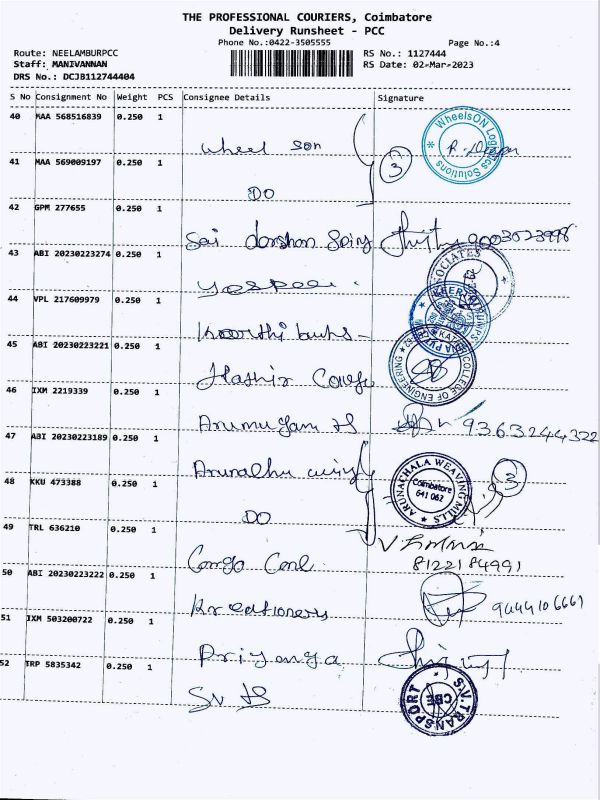 THE PROFESSIONAL COURIERS, Coimbatore
Delivery Runsheet - PCC
Phone No.:0422-3505555 Page No.:4
Route: NEELAMBURPCC RS No.: 1127444
Staff: MANIVANNAN RS Date: 02-Mar-2023
DRS No.: DCJB112744404
S No Consignment No Weight PCS Consignee Details Signature
40 MAA 568516839 0.250 1
Wheel Son
WheelsON Logistics Solutions
3
41 MAA 569009197 0.250 1
DO
42 GPM 277655 0.250 1
Sai darshan
43 ABI 20230223274 0.250 1
44 VPL 217609979 0.250 1
45 ABI 20230223221 0.250 1
COLLEGE OF ENGINEERING
46 IXM 2219339 0.250 1
Arumugam 9363244322
47 ABI 20230223189 0.250 1
ARUNACHALA WEAVING MILLS
Coimbatore
641 062
3
48 KKU 473388 0.250 1
DO
49 TRL 636210 0.250 1
8122184991
50 ABI 20230223222 0.250 1
Kreationers 9444106661
51 IXM 503200722 0.250 1
Priyanga
52 TRP 5835342 0.250 1
S.V.TRANSPORT
CBE